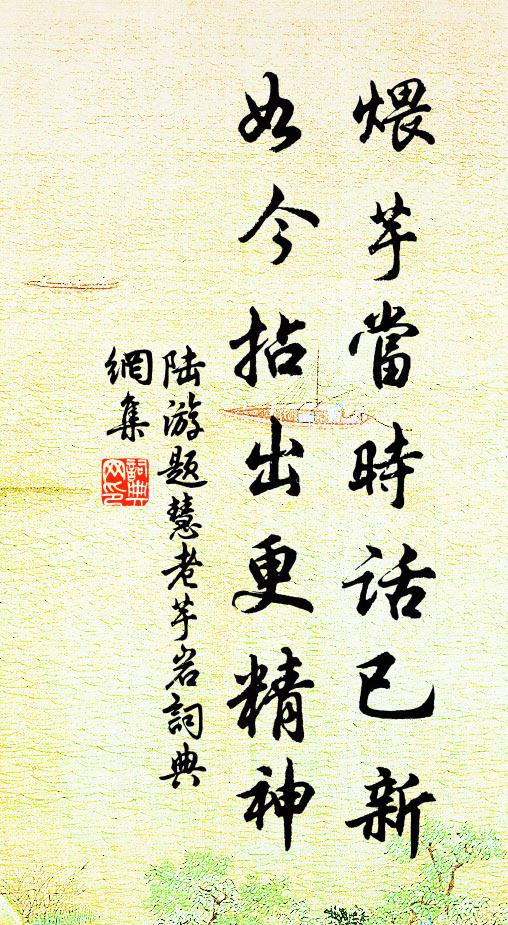 煨芋當時話已新
如今拈出更精神
陆游题慧老芋岩詞典
網集
詞典
网印